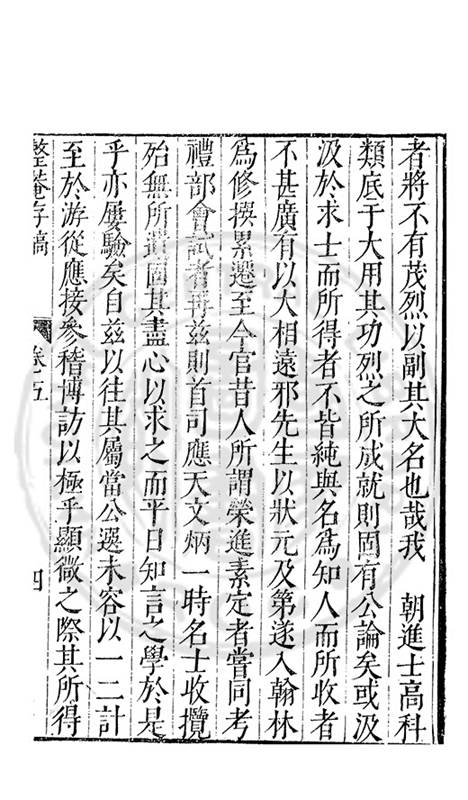 者將不有茂烈以副其大名也哉我　朝進士高科
類底于大用其功烈之所成就則固有公論矣或汲
汲於求士而所得者不皆純與名為知人而所收者
不甚廣有以大相遠邪先生以狀元及第遂入翰林
為修撰累遷至今官昔人所謂榮進素定者嘗同考
禮部會試者再茲則首司應天文炳一時名士收攬
殆無所遺固其盡心以求之而平日知言之學於是
乎亦屢驗矣自茲以往其屬當公選未容以一二計
至於游從應接參稽博訪以極乎顯微之際其所得
整菴存稿　卷五　四